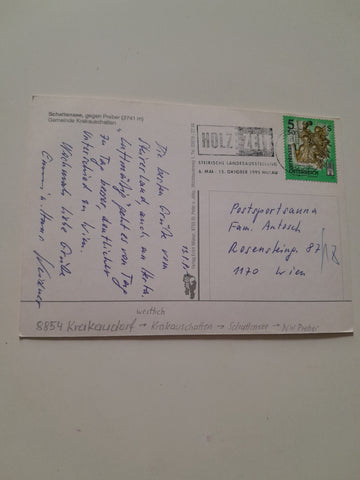 Schattensee, gegen Preber (2741 m)
Gemeinde Krakauschatten
Die besten Grüße vom
auch an Herta.
"Luftmäßig" geht es von Tag
zu Tag besser, deutlicher
Unterschied zu Wien.
Nochmals liebe Grüße
HOLZ ZEIT
STEIRISCHE LANDESAUSSTELLUNG
6. MAI - 15. OKTOBER 1995 MURAU
5
S
Postsportsauna
Fam. Antosch
Rosensteing. 87
1170 Wien
westlich
8854 Krakaudorf → Krakauschatten → Schattensee → Preber